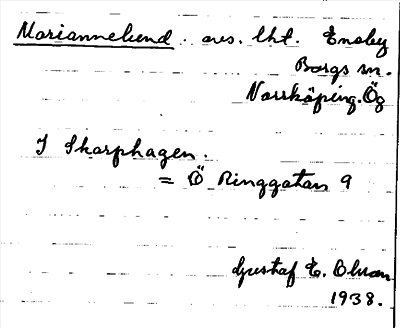 Mariannelund. avs. lht. Eneby
Borgs sn.
Norrköping. Ög
I Skarphagen.
= Ö Ringgatan 9
Gustaf E. Ohman
1938.